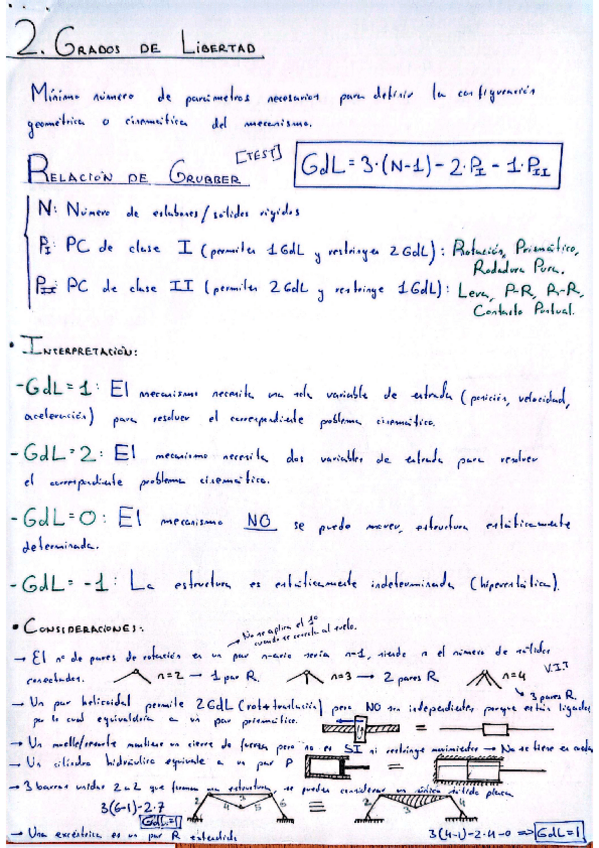 2. GRADOS DE LIBERTAD
Mínimo número de parámetros necesarios para definir la configuración
geométrica o cinemática del mecanismo.
[TEST]
RELACIÓN DE GRUBBER
GdL = 3·(N-1) - 2·P_I - 1·P_II
N: Número de eslabones/sólidos rígidos
P_I: PC de clase I (permiten 1GdL y restringen 2GdL): Rotación, Prismático,
Rodadura Pura.
P_II: PC de clase II (permiten 2GdL y restringe 1GdL): Leva, P-R, R-R,
Contacto Puntual.
• INTERPRETACIÓN:
-GdL=1: El mecanismo necesita una sola variable de entrada (posición, velocidad,
aceleración) para resolver el correspondiente problema cinemático.
-GdL=2: El mecanismo necesita dos variables de entrada para resolver
el correspondiente problema cinemático.
-GdL=0: El mecanismo NO se puede mover, estructura estáticamente
determinada.
-GdL=-1: La estructura es estáticamente indeterminada (hiperestática).
• CONSIDERACIONES:
No se aplica el 1º cuando se conecta al suelo.
→ El nº de pares de rotación en un par n-ario sería n-1, siendo n el número de sólidos
conectados. n=2 → 1 par R. n=3 → 2 pares R n=4 V.I.I
→ 3 pares R.
→ Un par helicoidal permite 2GdL (rot+traslación) pero NO son independientes porque están ligados
por lo cual equivaldría a un par prismático. =
→ Un muelle/resorte mantiene un cierre de fuerza pero no es SI ni restringe movimiento → No se tiene en cuenta
→ Un cilindro hidráulico equivale a un par P ≡
→ 3 barras unidas 2 a 2 que forman una estructura se pueden considerar un único sólido placa
3(6-1)-2·7 2 3 4 5 6 ≡ 2 3 4
GdL=1
→ Una excéntrica es un par R extendido 3(4-1)-2·4-0 => GdL=1